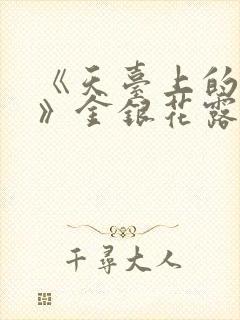 《天臺上的
》金銀花露
千尋大人